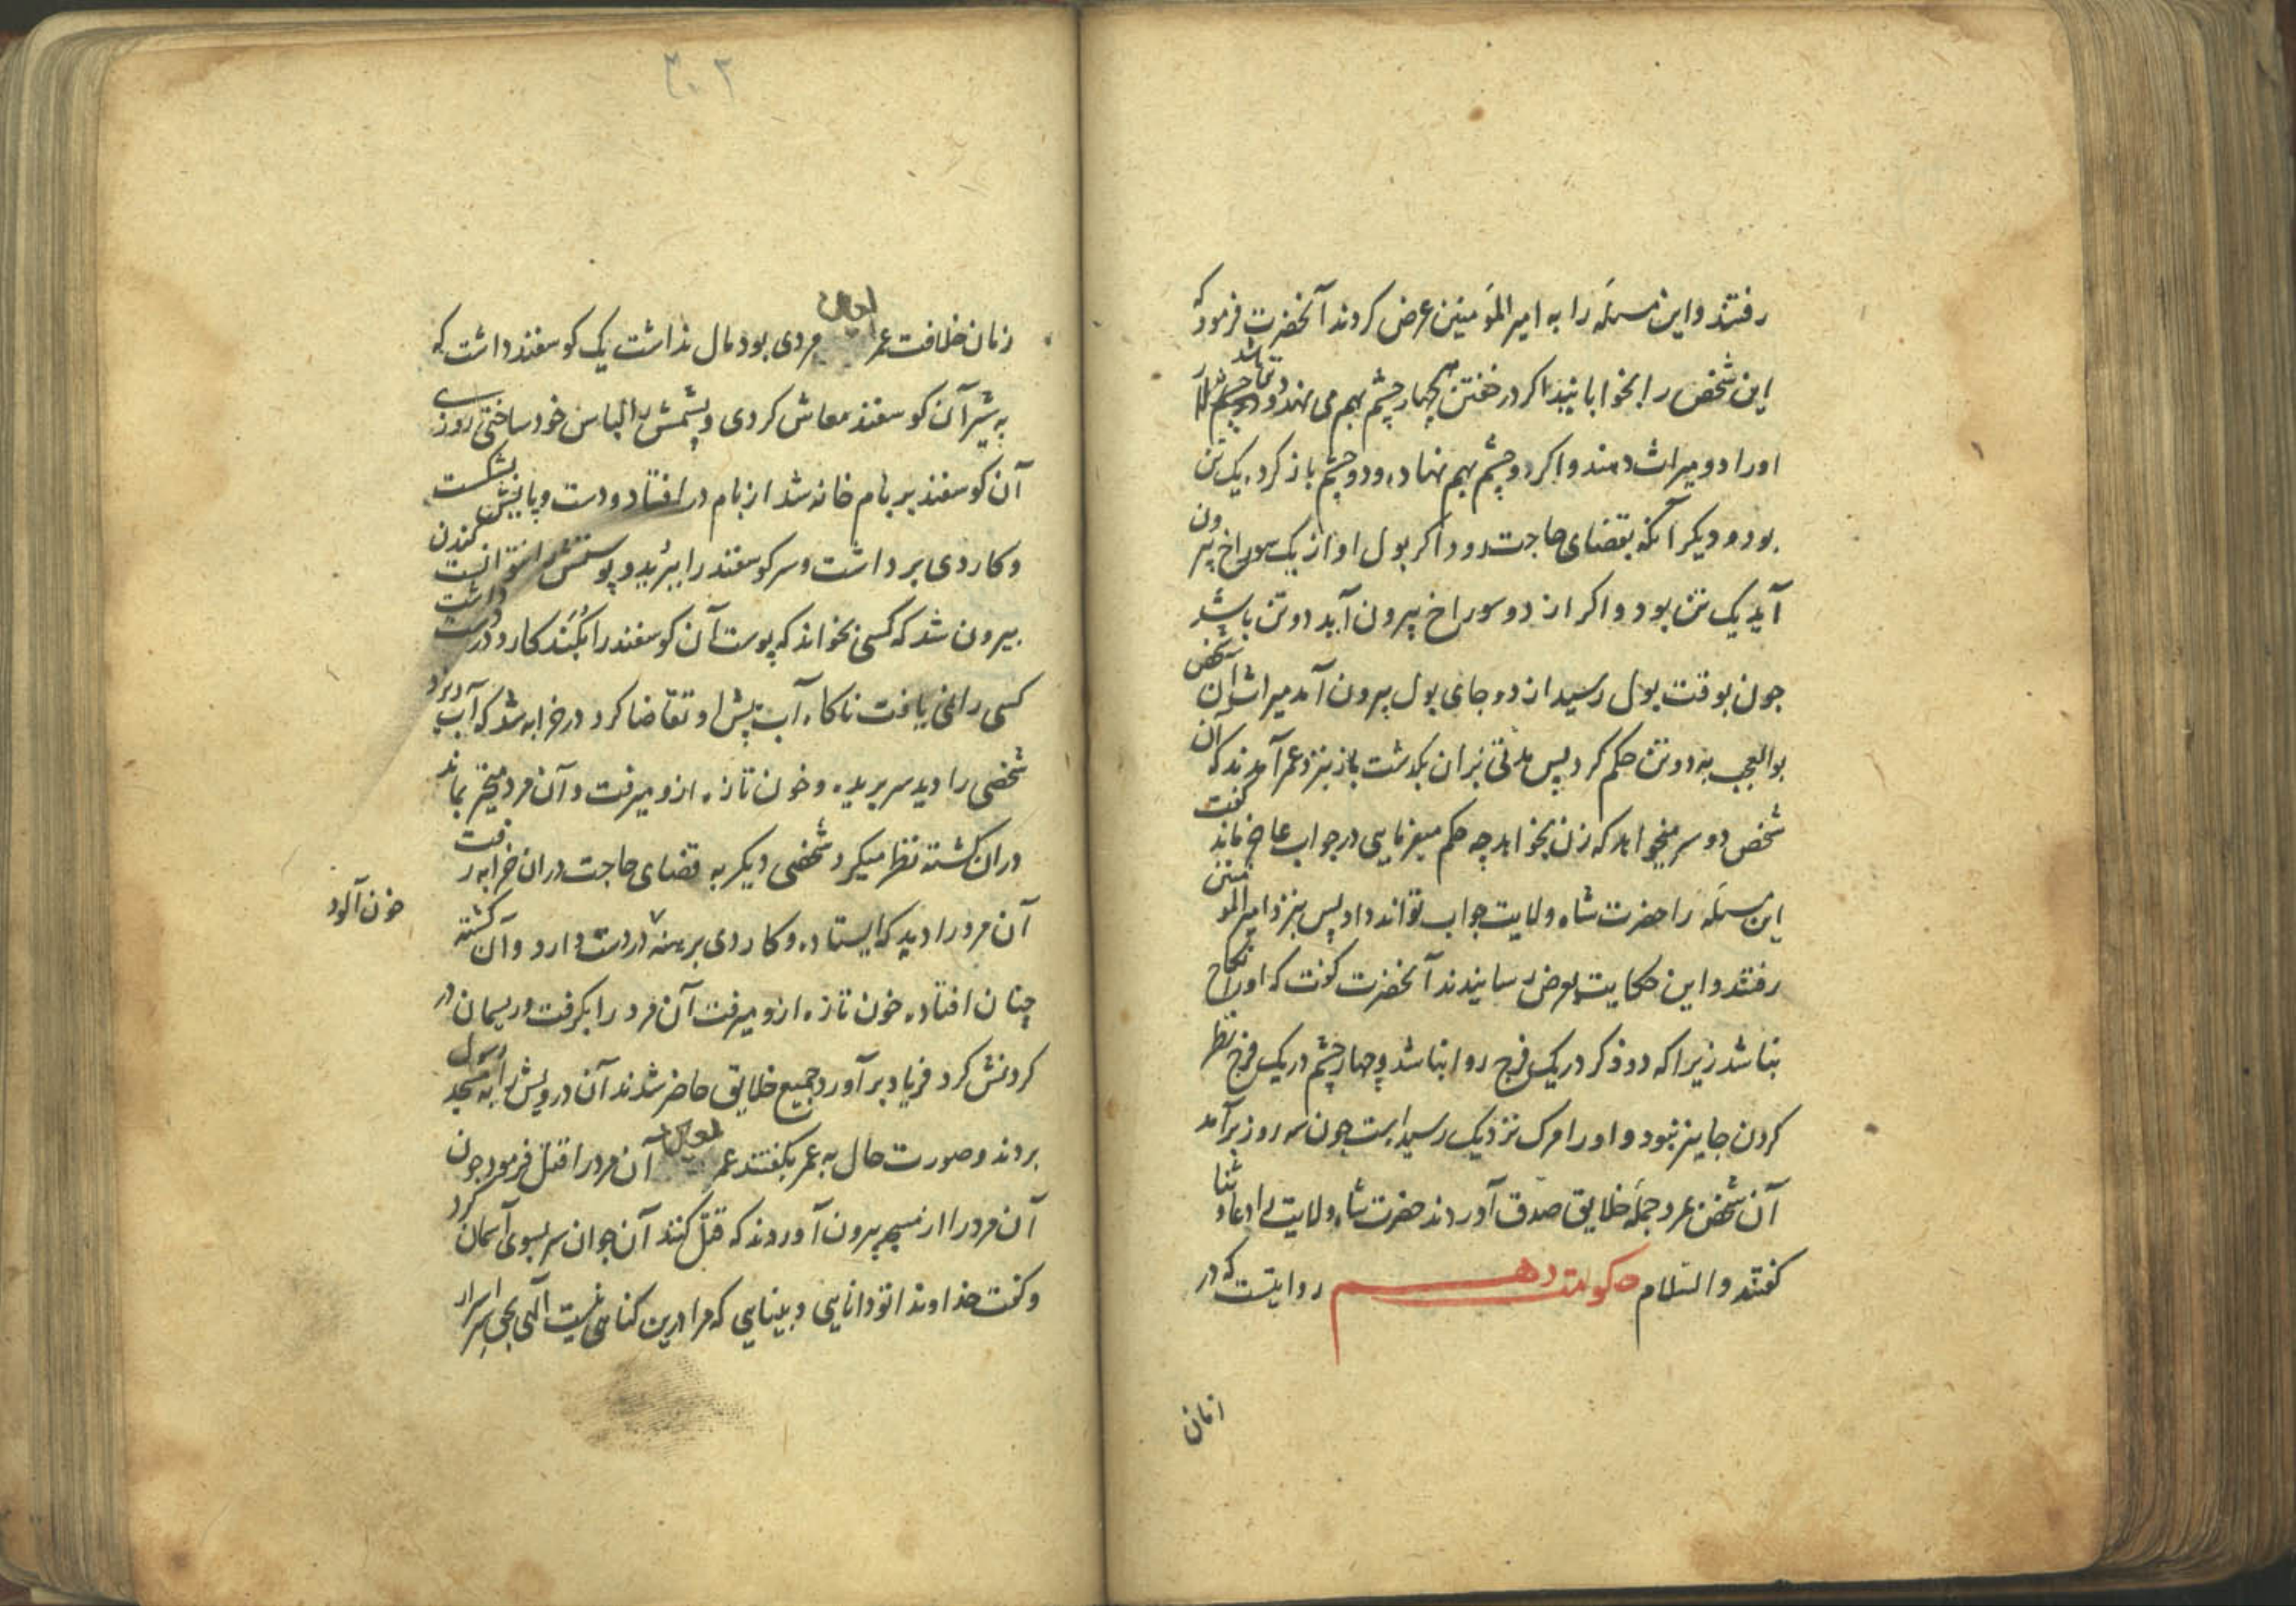 رفتند و این مسئله را به امیر المؤمنین عرض کردند آنحضرت فرمود که
این شخص را بخوابانید اکر در خفتن چهار چشم بهم می نهد و
او را دو میراث دهند و اکر دو چشم بهم نهاده و دو چشم باز کرده یک تن
بود و دیکر آنکه بقضای حاجت رود اکر بول او از یک سوراخ بیرون
آید یک تن بود و اکر از دو سوراخ بیرون آید دو تن باشد
چون بوقت بول رسید از دو جای بول بیرون آمد میراث آن شخص
بوالعجب به دو تن حکم کرد پس مدتی بران بکذشت باز بنزد عمر آمدند که آن
شخص دو سر میخواهد که زن بخواهد چه حکم میفرمایی در جواب عاجز ماند کفت
این مسئله را حضرت شاه ولایت جواب تواند داد پس بنزد امیر المؤمنین
رفتند و این حکایت بعرض رسانیدند آنحضرت کفت که او را نکاح
نباشد زیرا که دو ذکر در یک فرج روا نباشد و چهار چشم در یک فرج نظر
کردن جایز نبود و او را مرک نزدیک رسیده است چون سه روز برآمد
آن شخص بمرد جمله خلایق صدق آوردند حضرت شاه ولایت را دعا و ثنا
کفتند والسلام حکایت دهم روایتست که در
زمان
۳۰۲
زمان خلافت عمر مردی بود مال نداشت یک کوسفند داشت که
به شیر آن کوسفند معاش کردی و پشمش را لباس خود ساختی روزی
آن کوسفند بر بام خانه شد از بام در افتاد و دست و پایش بشکست
و کاردی برداشت و سر کوسفند را ببرید و پوستش نتوانست کندن
بیرون شد که کسی بخواند که پوست آن کوسفند را بکند کارد در دست داشت
کسی را نمی یافت ناکاه آب پیش او تقاضا کرد در خرابه شد که آب بریزد
شخصی را دید سر بریده و خون تازه ازو میرفت و آن مرد متحیر بماند
دران کشته نظر میکرد شخصی دیکر به قضای حاجت دران خرابه رفت
آن مرد را دید که ایستاده و کاردی برهنه در دست دارد و آن کشته
خون آلود
چنان افتاده خون تازه ازو میرفت آن مرد را بکرفت و ریسمان در
کردنش کرد فریاد برآورد جمیع خلایق حاضر شدند آن درویش را به مسجد رسول
بردند و صورت حال به عمر بکفتند عمر آن مرد را قتل فرمود چون
آن مرد را از مسجد بیرون آوردند که قتل کنند آن جوان سر بسوی آسمان کرد
و کفت خداوندا تو دانایی و بینایی که مرا درین کناهی نیست الهی بحق اسرار